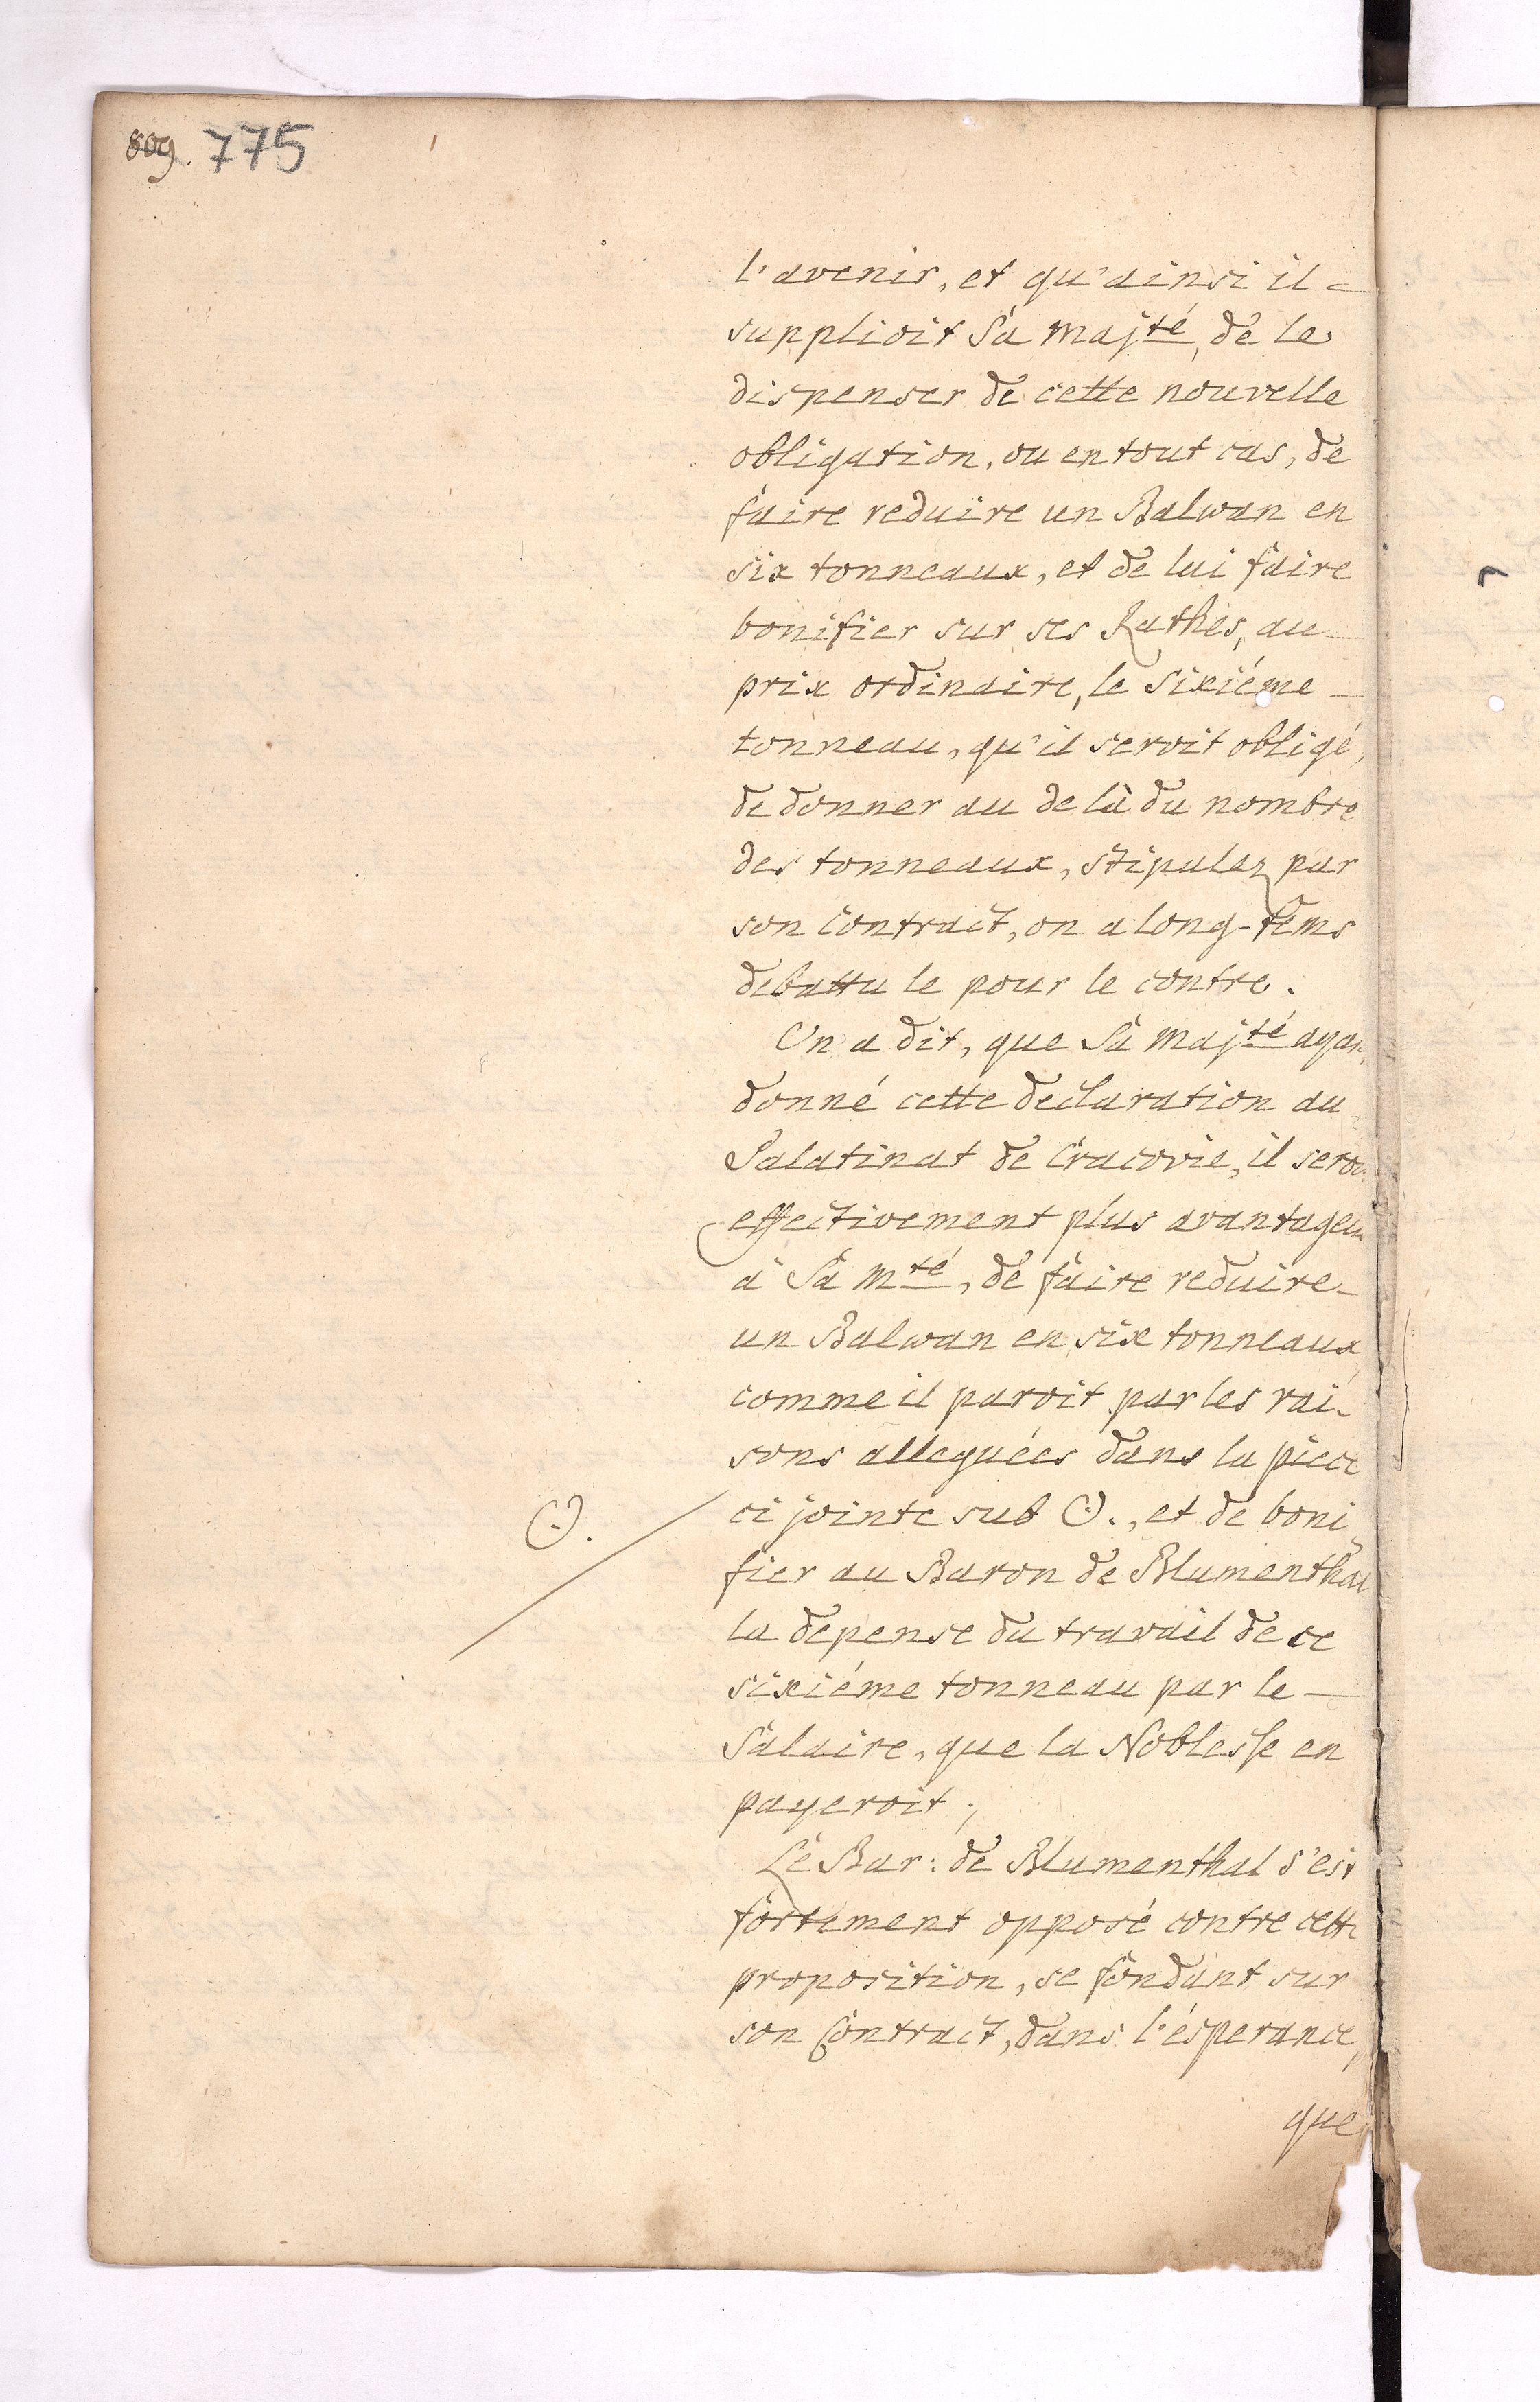 809. 775
l'avenir, et qu'ainsi il
supplioit Sa Majté, de le
dispenser de cette nouvelle
obligation, ou en tout cas, de
faire reduire un Balwan en
six tonneaux, et de lui faire
bonifier sur ses Rathes, au
prix ordinaire, le sixiéme
tonneau, qu'il seroit obligé,
de donner au de là du nombre
des tonneaux, stipulez par
son Contract, on a long-têms
debattu le pour le contre.
On a dit, que Sa Majté ayan
donné cette declaration au
Palatinat de Cracovie, il seroi
effectivement plus avantageu
à Sa Mté, de faire reduire
un Balwan en six tonneaux
comme il paroit par les rai-
sons alleguées dans la piece
☉. ci jointe sub ☉., et de boni
fier au Baron de Blumenthal
la depense du travail de ce
sixiéme tonneau par le
Salaire, que la Noblesse en
payeroit;
Le Bar: de Blumenthal s'est
fortement opposé contre cette
proposition, se fondant sur
son Contract, dans l'ésperance,
que